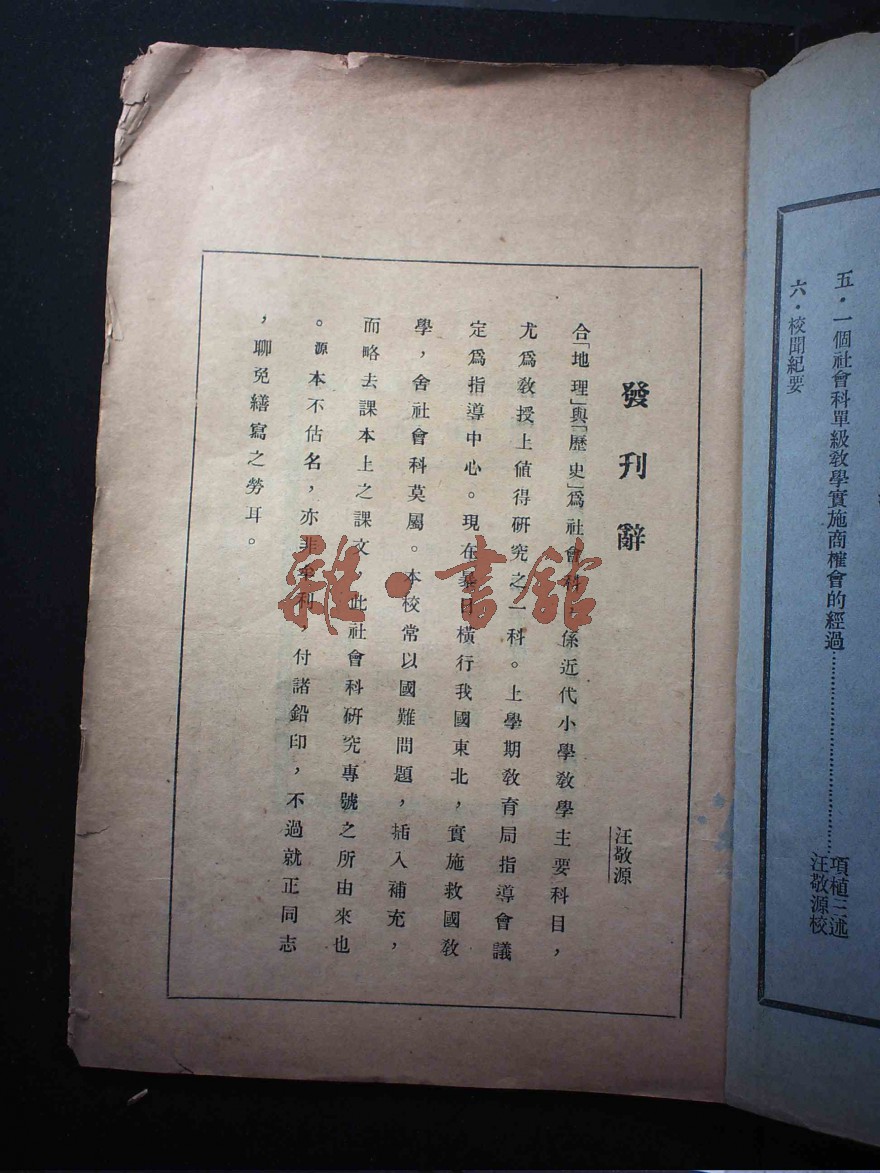 五・一個社會科單級教學實施商榷會的經過……………………………項植三述
汪敬源校
六・校聞紀要
發刊辭
汪敬源
合「地理」與「歷史」爲社會科，係近代小學教學主要科目，
尤爲教授上値得硏究之一科。上學期教育局指導會議
定爲指導中心。現在暴日橫行我國東北，實施救國教
學，舍社會科莫屬。本校常以國難問題，插入補充，
而略去課本上之課文，此社會科硏究專號之所由來也
。源本不估名，亦非牟利，付諸鉛印，不過就正同志
，聊免繕寫之勞耳。
雜・書館